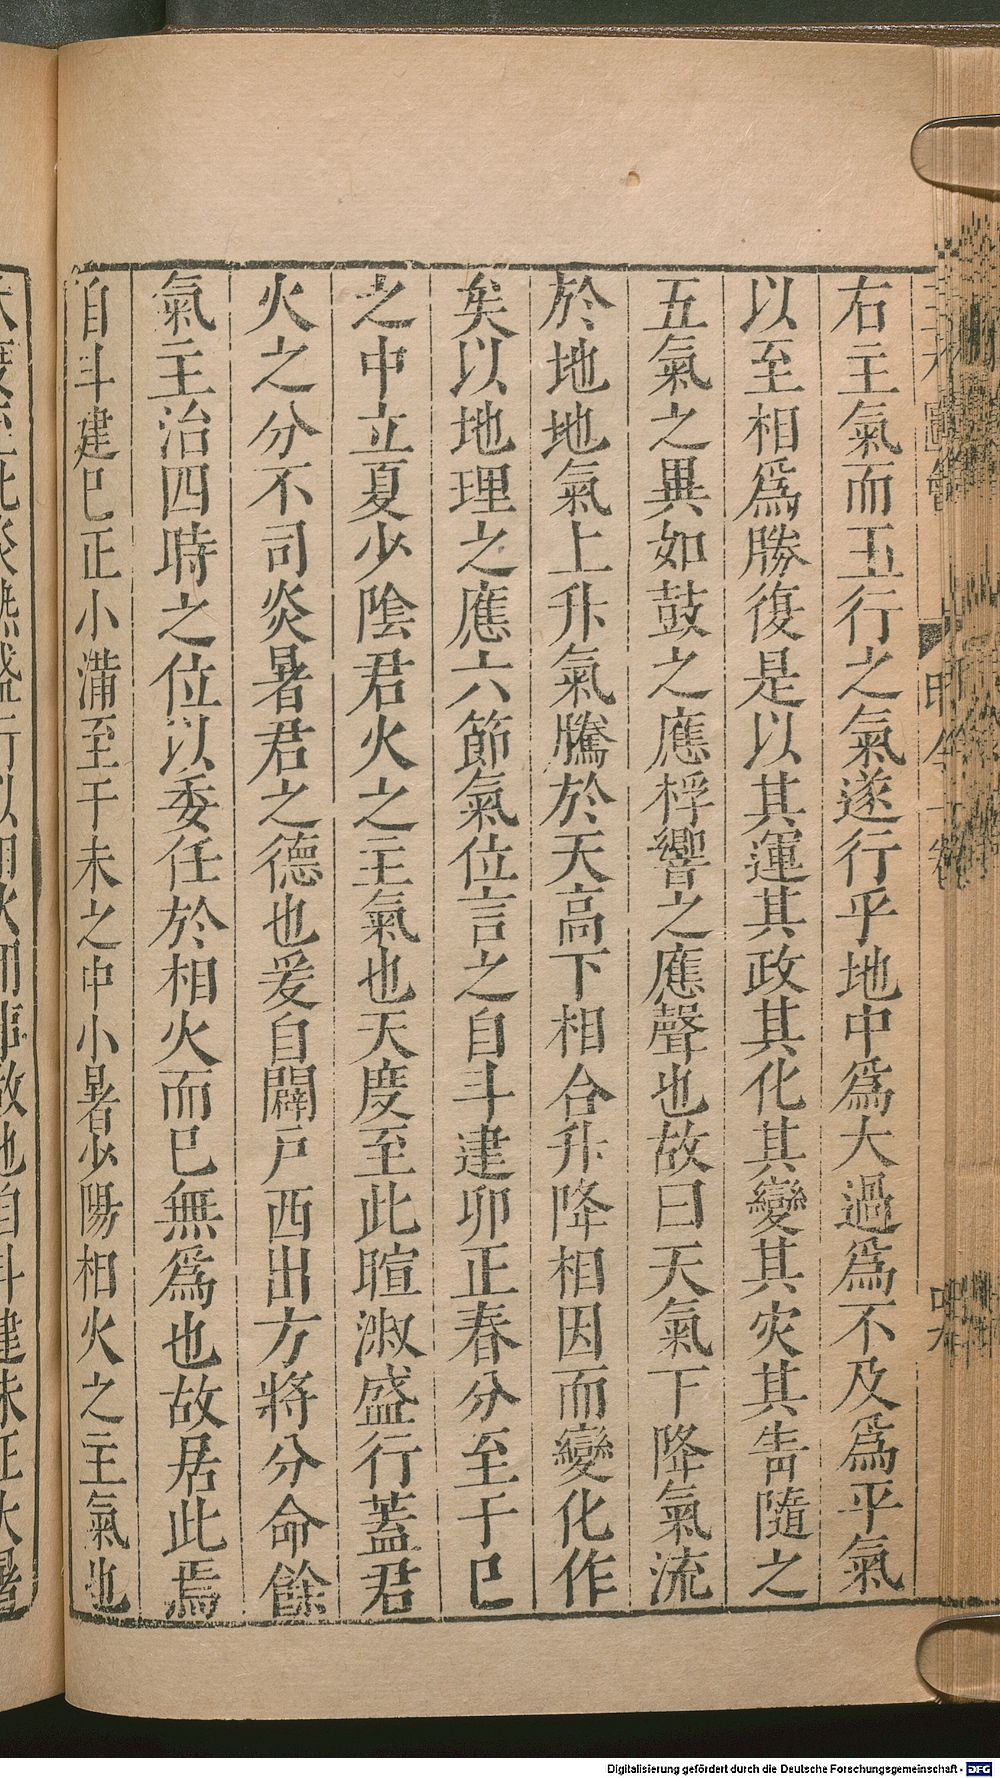 右主氣而五行之氣遂行乎地中爲大過爲不及爲平氣
以至相爲勝復是以其運其政其化其變其灾其眚隨之
五氣之異如鼓之應桴響之應聲也故曰天氣下降氣流
於地地氣上升氣騰於天高下相合升降相因而變化作
矣以地理之應六節氣位言之自斗建卯正春分至于巳
之中立夏少陰君火之主氣也天度至此暄淑盛行蓋君
火之分不司炎暑君之德也爰自闢戶西出方將分命餘
氣主治四時之位以委任於相火而已無爲也故居此焉
自斗建巳正小滿至于未之中小暑少陽相火之主氣也
Digitalisierung gefördert durch die Deutsche Forschungsgemeinschaft - DFG